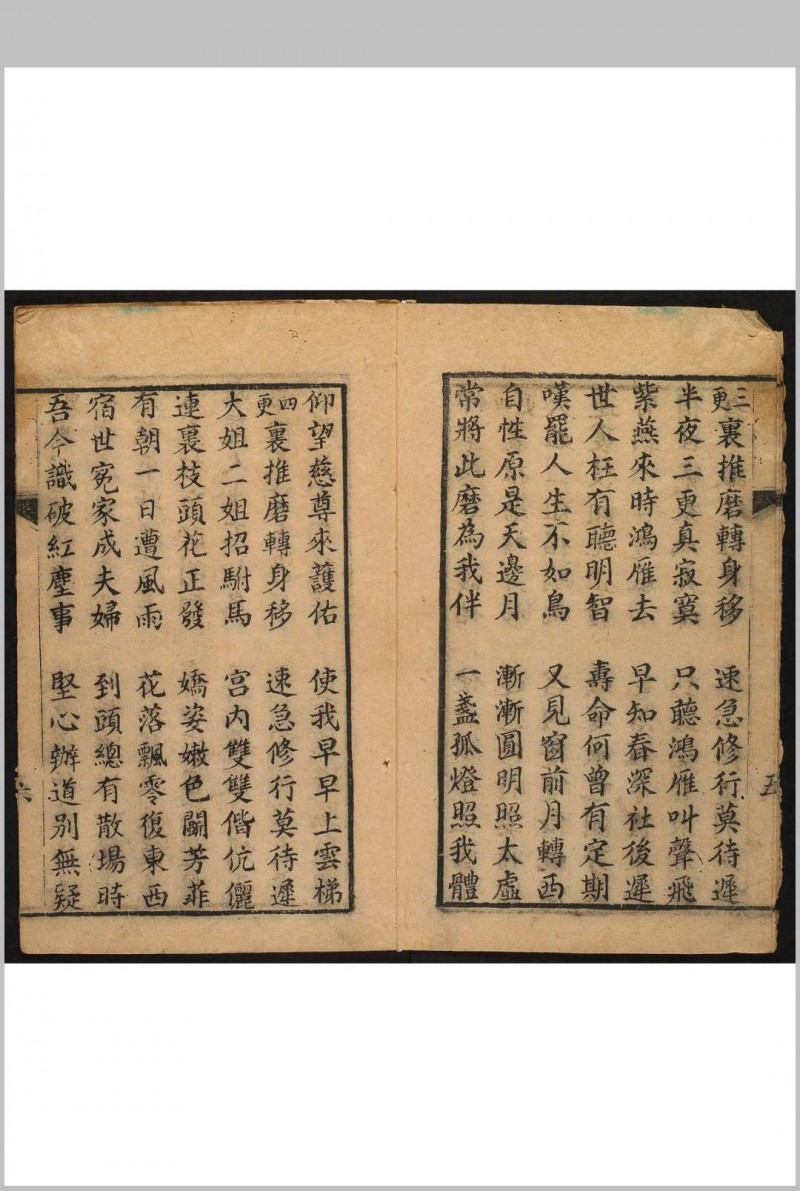 三更裏推磨轉身移　速急修行莫待遲
半夜三更真寂寞　只聽鴻雁叫聲飛
紫燕來時鴻雁去　早知春深社後遲
世人枉有聽明智　壽命何曾有定期
嘆罷人生不如鳥　又見窗前月轉西
自性原是天邊月　漸漸圓明照太虛
常將此磨為我伴　一盞孤燈照我體
五
仰望慈尊來護佑　使我早早上雲梯
四更裏推磨轉身移　速急修行莫待遲
大姐二姐招駙馬　宮內雙雙偕伉儷
連裏枝頭花正發　嬌姿嫩色鬭芳菲
有朝一日遭風雨　花落飄零復東西
宿世冤家成夫婦　到頭總有散場時
吾今識破紅塵事　堅心辦道別無疑
六